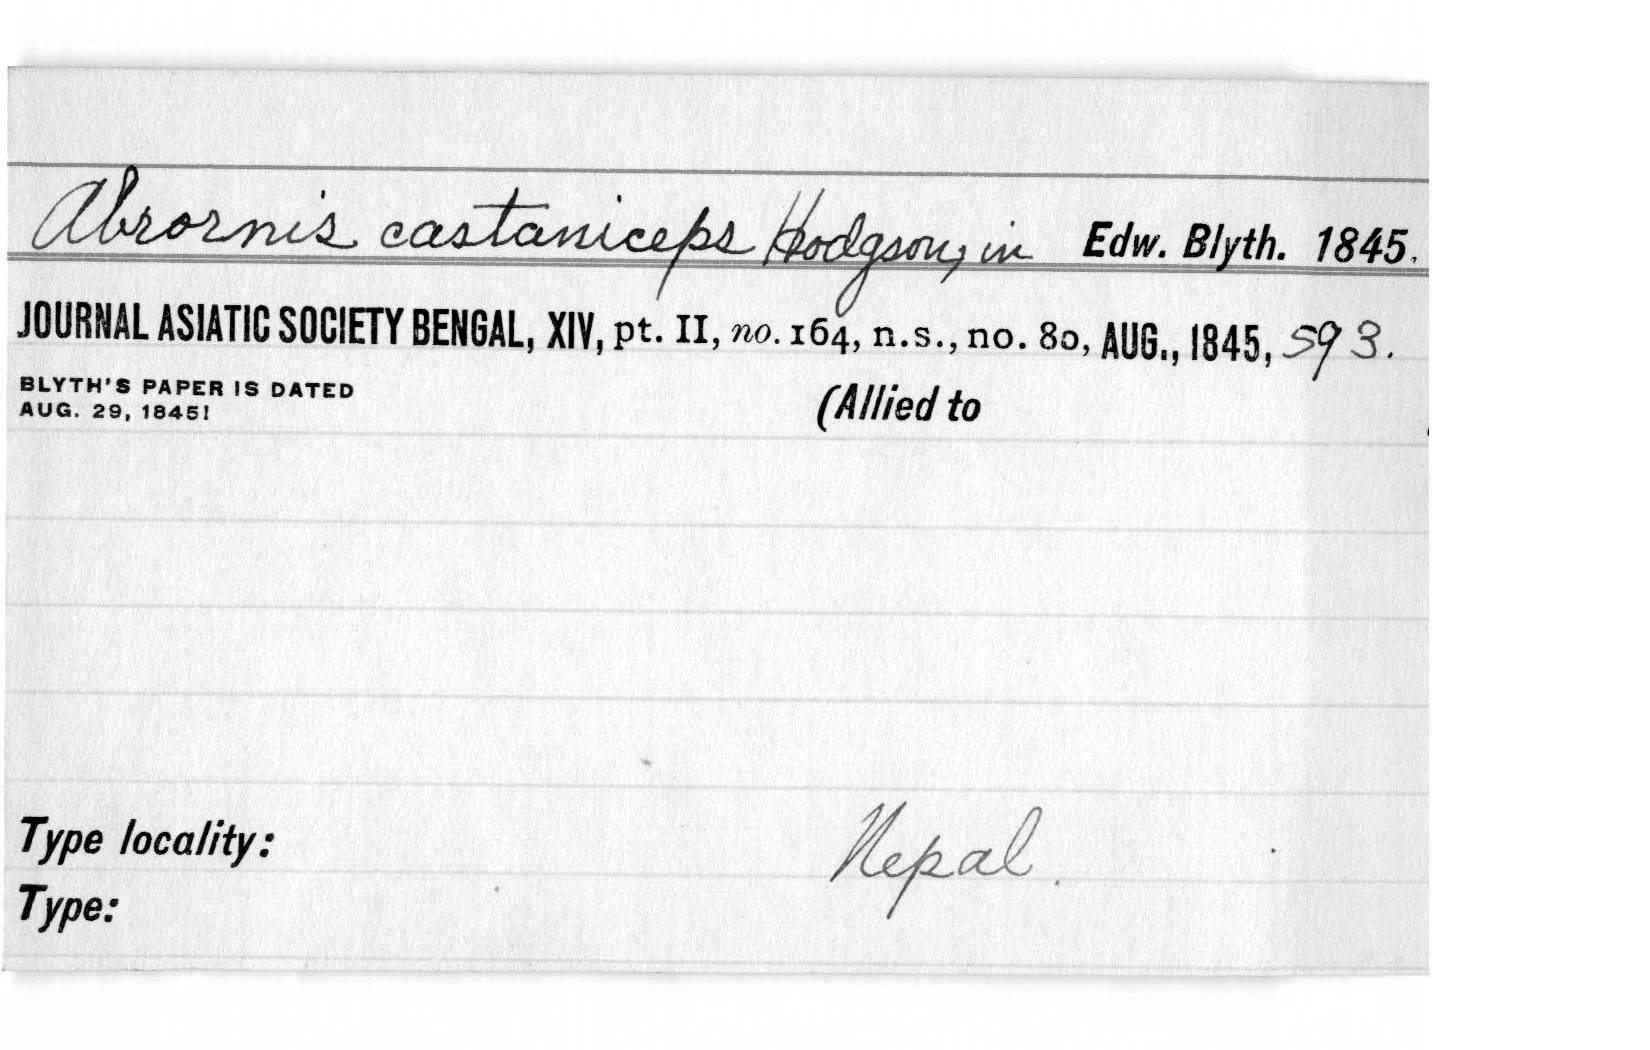 Abrornis castaniceps Hodgson, in Edw. Blyth. 1845.
JOURNAL ASIATIC SOCIETY BENGAL, XIV, pt. II, no. 164, n.s., no. 80, AUG., 1845, 593.
BLYTH'S PAPER IS DATED
AUG. 29, 1845!
(Allied to
Type locality: Nepal.
Type: